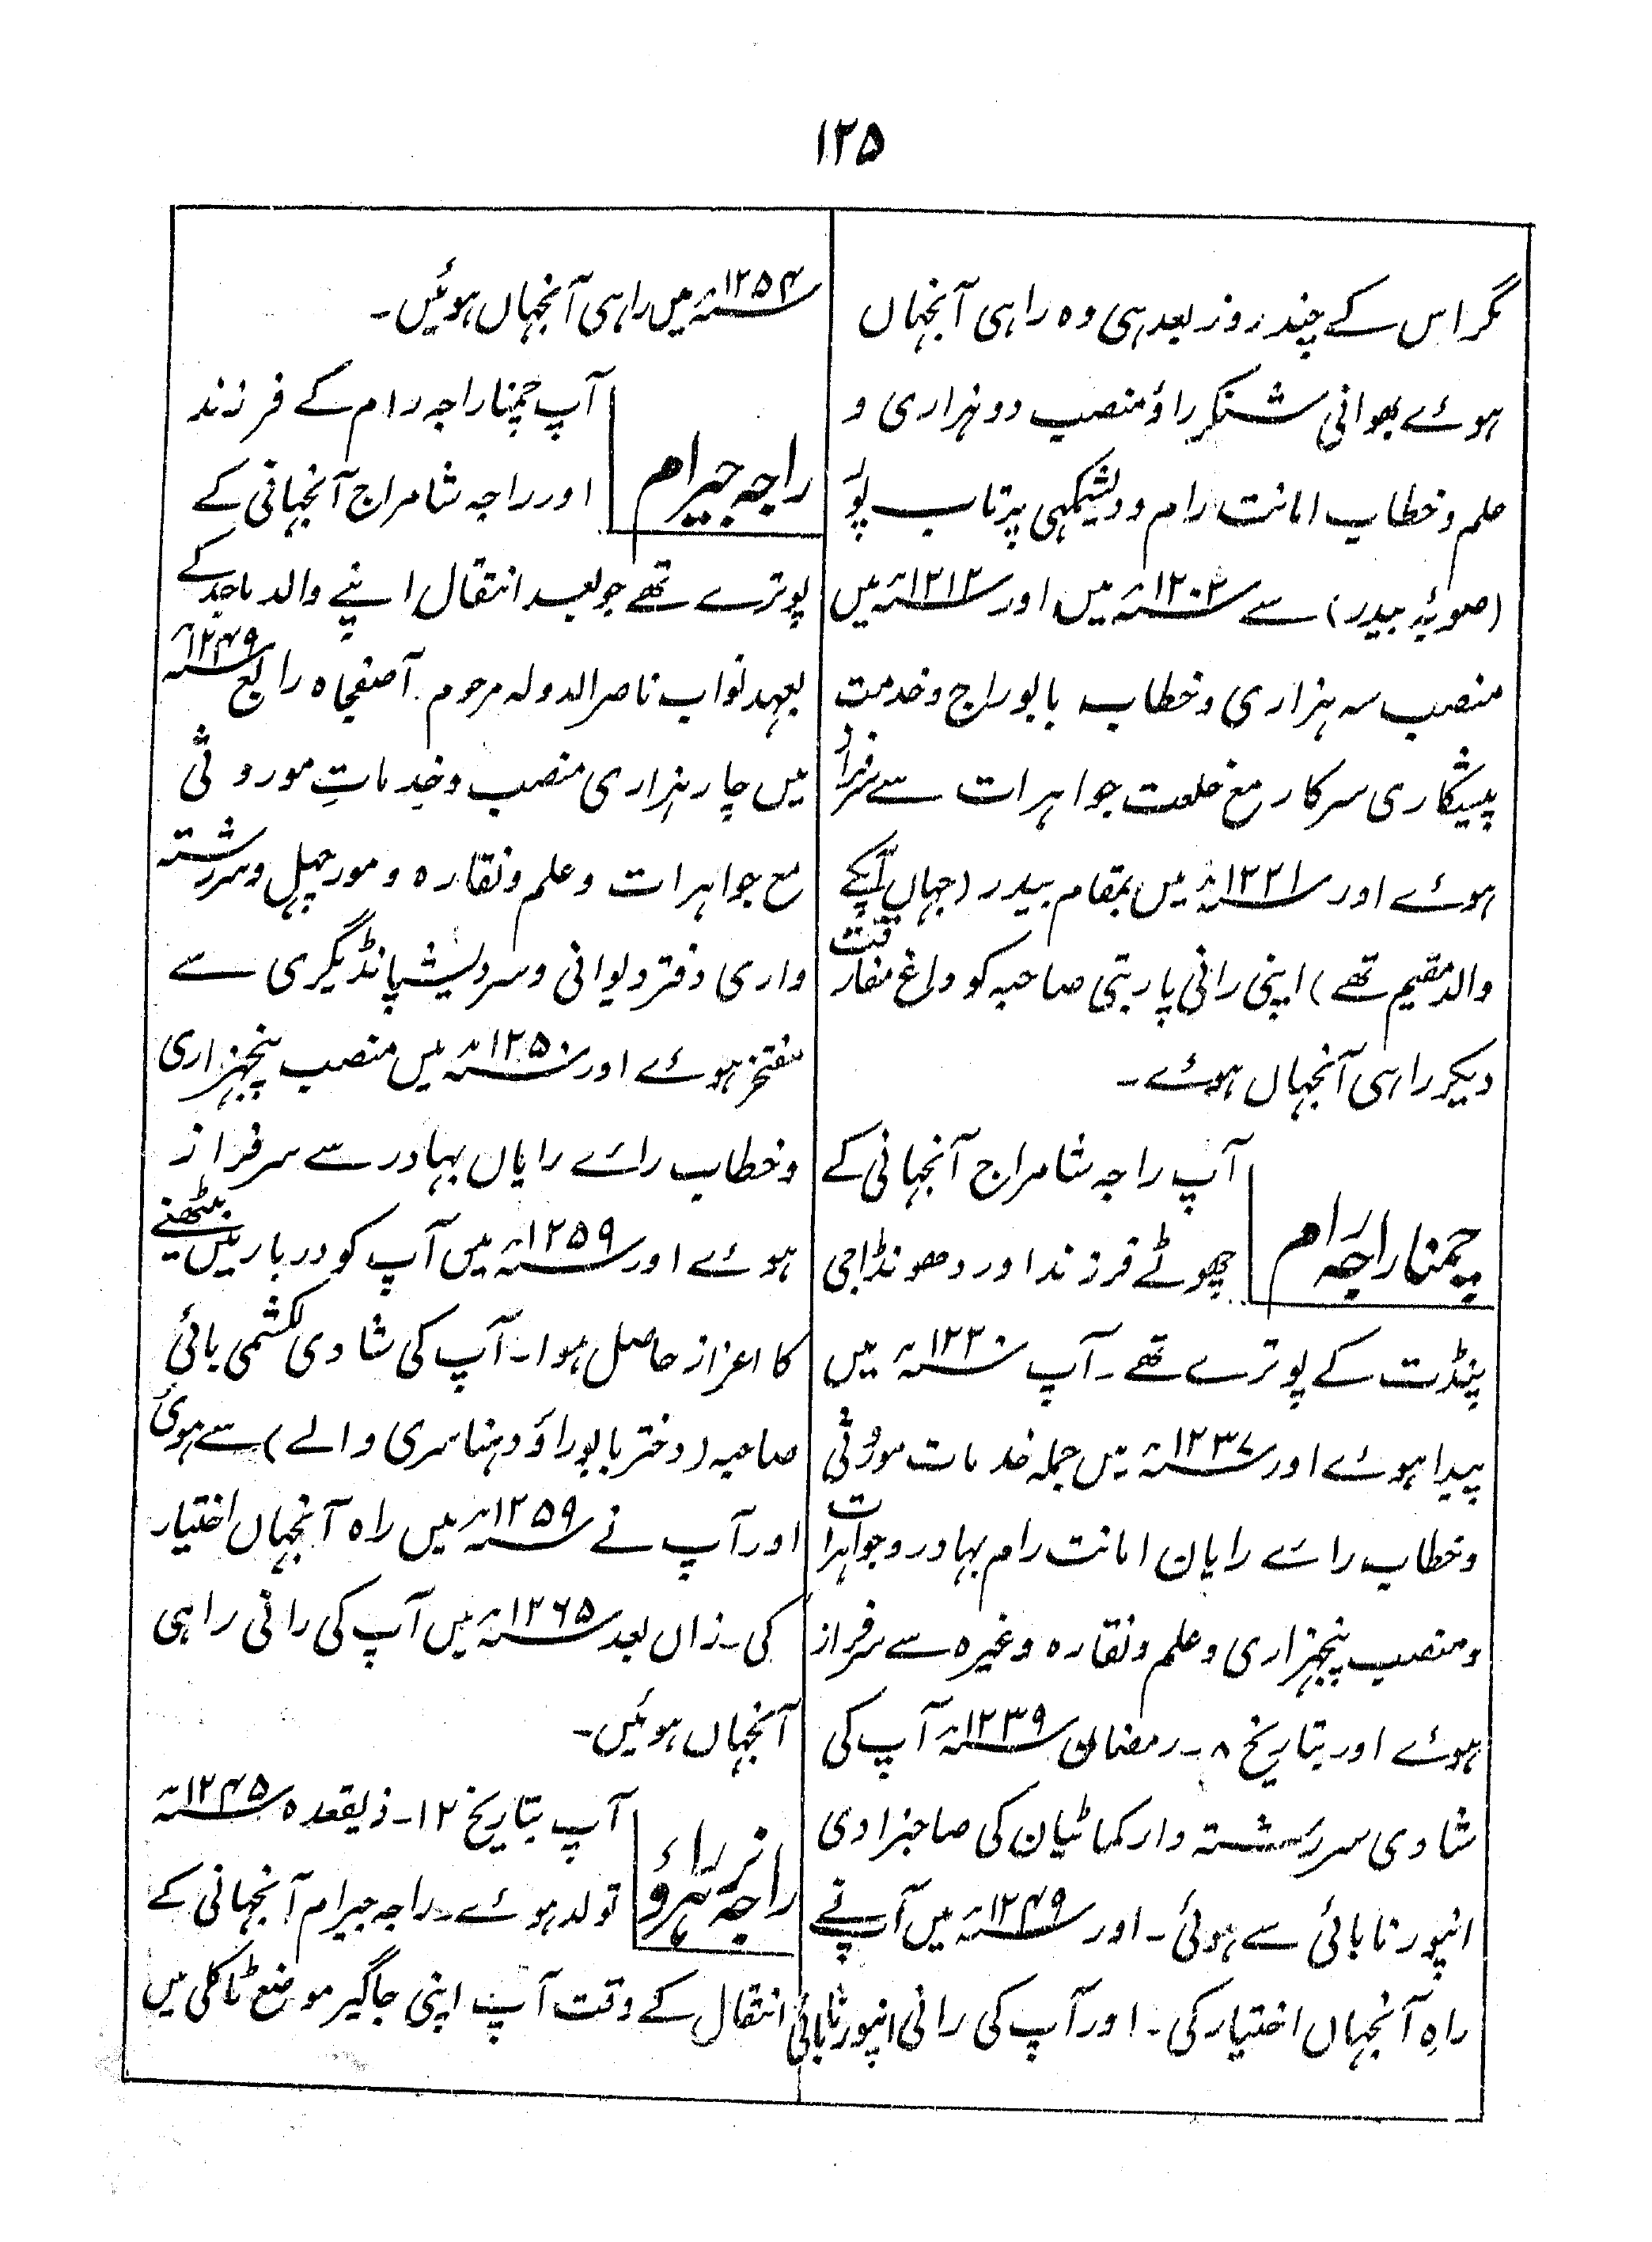 ۱۲۵
مگر اس کے چند روز بعد ہی وہ راہی آنجہاں
ہوئے بھوانی شنکر راؤ منصب دو ہزاری و
علم و خطاب امانت رام و دیشمکہی پرتاب پور
(صوبۂ بیدر) سے ۱۲۰۲ھ میں اور ۱۲۱۲ھ میں
منصب سہ ہزاری و خطاب بابو راج و خدمت
پیشکاری سرکار مع خلعت جواہرات سے سرفراز
ہوئے اور ۱۲۲۱ھ میں بمقام بیدر (جہاں آپکے
والد مقیم تھے) اپنی رانی پاربتی صاحبہ کو داغ مفارقت
دیکر راہی آنجہاں ہوئے۔
چمنا راجہ رام
آپ راجہ شامراج آنجہانی کے
چھوٹے فرزند اور دھونڈاجی
پنڈت کے پوترے تھے۔ آپ ۱۲۲۰ھ میں
پیدا ہوئے اور ۱۲۳۷ھ میں جملہ خدمات موروثی
و خطاب رائے رایان امانت رام بہادر و جواہرات
و منصب پنجہزاری و علم و نقارہ وغیرہ سے سرفراز
ہوئے اور بتاریخ ۸۔ رمضان ۱۲۳۹ھ آپ کی
شادی سررشتہ دار کماٹیان کی صاحبزادی
انپورنا بائی سے ہوئی۔ اور ۱۲۴۹ھ میں آپ نے
راہِ آنجہاں اختیار کی۔ اور آپ کی رانی انپورنا بائی
۱۲۵۴ھ میں راہی آنجہاں ہوئیں۔
راجہ جیرام
آپ چمنا راجہ رام کے فرزند
اور راجہ شامراج آنجہانی کے
پوترے تھے جو بعد انتقال اپنے والد ماجد کے
بعہد نواب ناصر الدولہ مرحوم آصفجاہ رابع ۱۲۴۹ھ
میں چار ہزاری منصب و خدماتِ موروثی
مع جواہرات و علم و نقارہ و مورچہل و سررشتہ
داری دفتر دیوانی و سردیشپانڈیگری سے
مفتخر ہوئے اور ۱۲۵۰ھ میں منصب پنجہزاری
و خطاب رائے رایاں بہادر سے سرفراز
ہوئے اور ۱۲۵۹ھ میں آپ کو دربار میں بیٹھنے
کا اعزاز حاصل ہوا۔ آپ کی شادی لکشمی بائی
صاحبہ (دختر بابو راؤ دہناسری والے) سے ہوئی
اور آپ نے ۱۲۵۹ھ میں راہ آنجہاں اختیار
کی۔ زاں بعد ۱۲۶۵ھ میں آپ کی رانی راہی
آنجہاں ہوئیں۔
راجہ
آپ بتاریخ ۱۲۔ ذیقعدہ ۱۲۴۵ھ
تولد ہوئے۔ راجہ جیرام آنجہانی کے
انتقال کے وقت آپ اپنی جاگیر موضع ٹاکلی میں